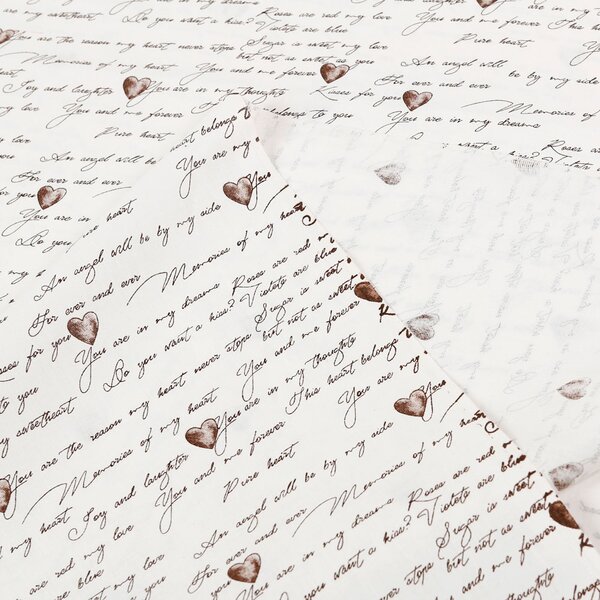 Do you want a kiss? Roses are red my love You and me forever This
Violets are blue
You are the reason my heart never stops Sugar is sweet my love Pure heart
but not as sweet as you
Memories of my heart You and me forever An angel will be by my side
Joy and laughter You are in my thoughts Kisses for you For ever and ever
my love You and me forever belongs to you You are in my dreams Memories of
Pure heart heart belongs want a kiss? Roses are
Violets
An angel will be You are my
For ever and ever You
You are in heart
Do you
An angel will be by my side
For ever and ever Memories of my heart
You are in my dreams Roses are red
Do you want a kiss? Violets are blue
for you Sugar is sweet
but not as sweet
to you You are the reason my heart never stops You and me forever
my sweetheart You are in my thoughts
You are the reason my heart never stops This heart belongs
Memories of my heart You are in my thoughts You are my You
my heart Joy and laughter You and me forever
are red my love Pure heart
are blue An angel will be by my side
my love For ever and ever Memories of my
You are in my dreams Roses are red
Do you want a kiss? Violets are blue
Sugar is sweet
but not as sweet
You and me forever